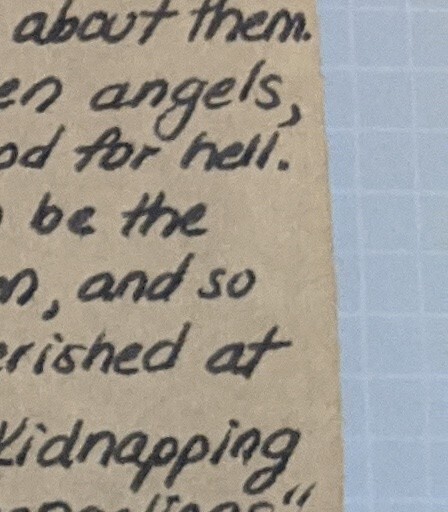 about them.
en angels,
od for hell.
be the
n, and so
erished at
Kidnapping